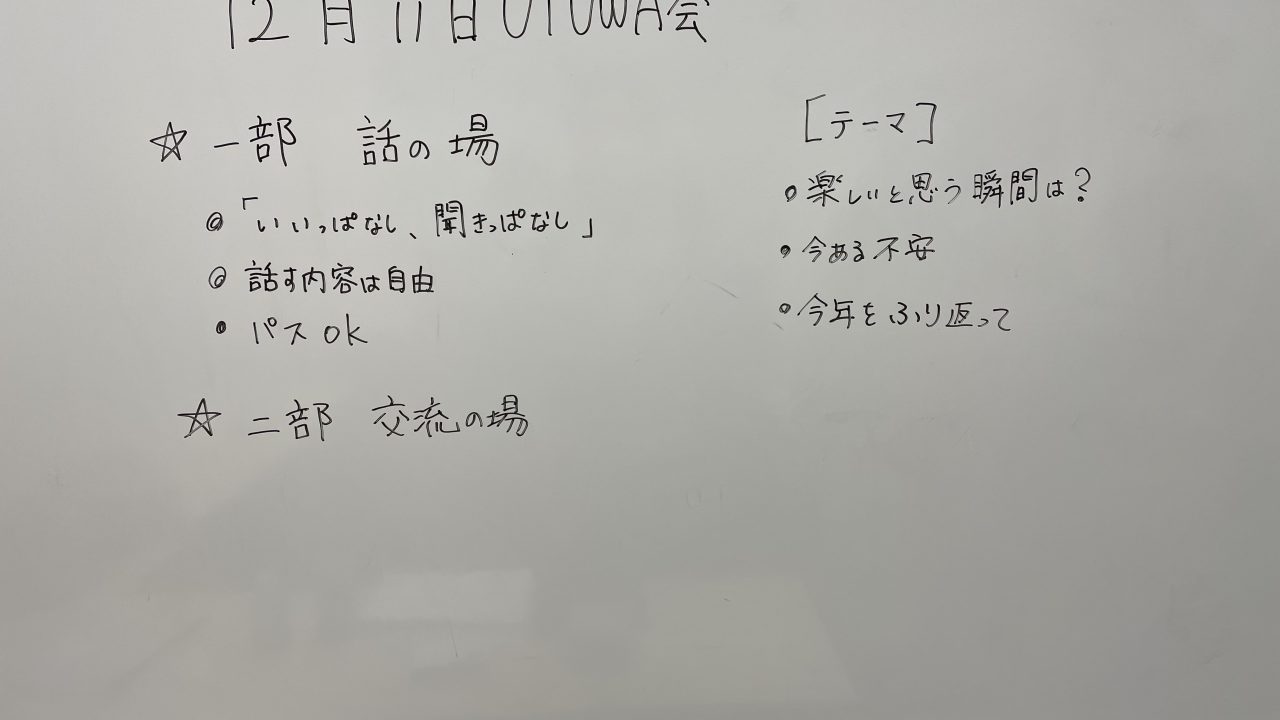 12月11日UTUWA会
☆ 一部 話の場
◎ 「いいっぱなし、聞きっぱなし」
◎ 話す内容は自由
• パスOK
☆ 二部 交流の場
[テーマ]
• 楽しいと思う瞬間は?
• 今ある不安
• 今年をふり返って